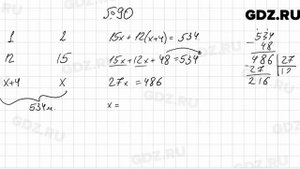 №90
GDZ.RU
1 2
12 15
x+4 x
534м.
15x+12(x+4)=534
15x+12x+48=534
27x=486
x=
534
- 48
486 | 27
- 27 | 12
216
GDZ.RU